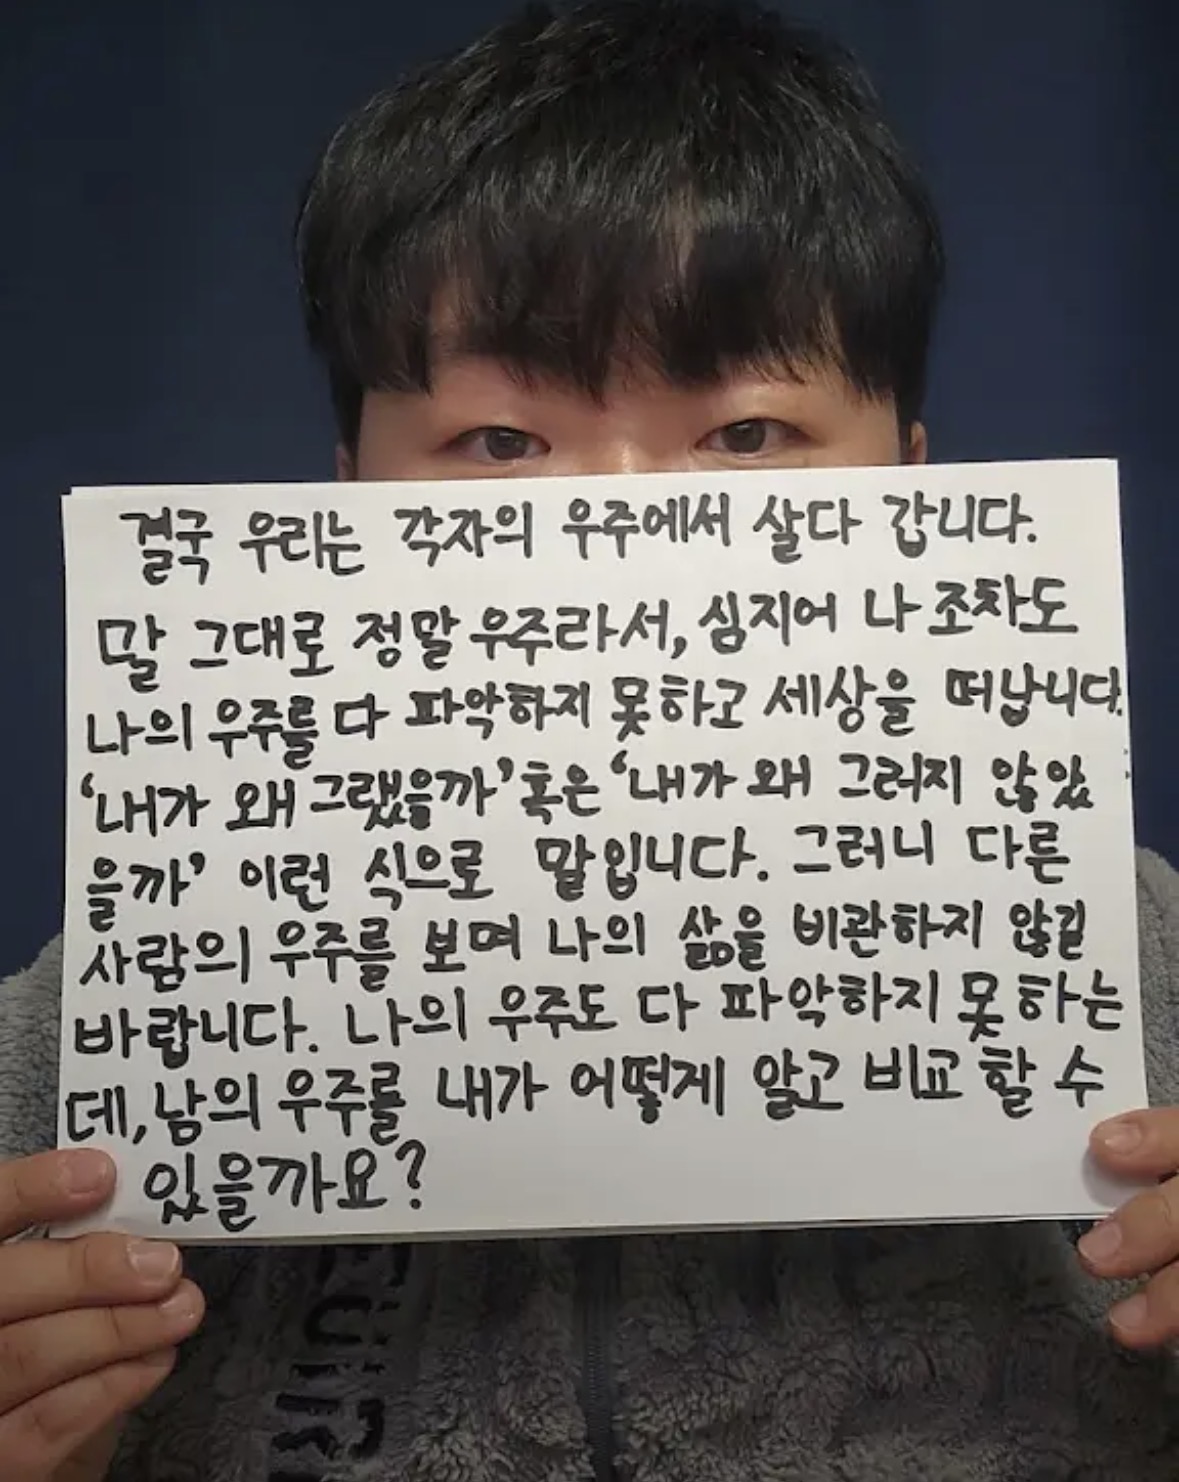 결국 우리는 각자의 우주에서 살다 갑니다.
말 그대로 정말 우주라서, 심지어 나 조차도
나의 우주를 다 파악하지 못하고 세상을 떠납니다.
‘내가 왜 그랬을까’ 혹은 ‘내가 왜 그러지 않았
을까’ 이런 식으로 말입니다. 그러니 다른
사람의 우주를 보며 나의 삶을 비관하지 않길
바랍니다. 나의 우주도 다 파악하지 못하는
데, 남의 우주를 내가 어떻게 알고 비교 할 수
있을까요?